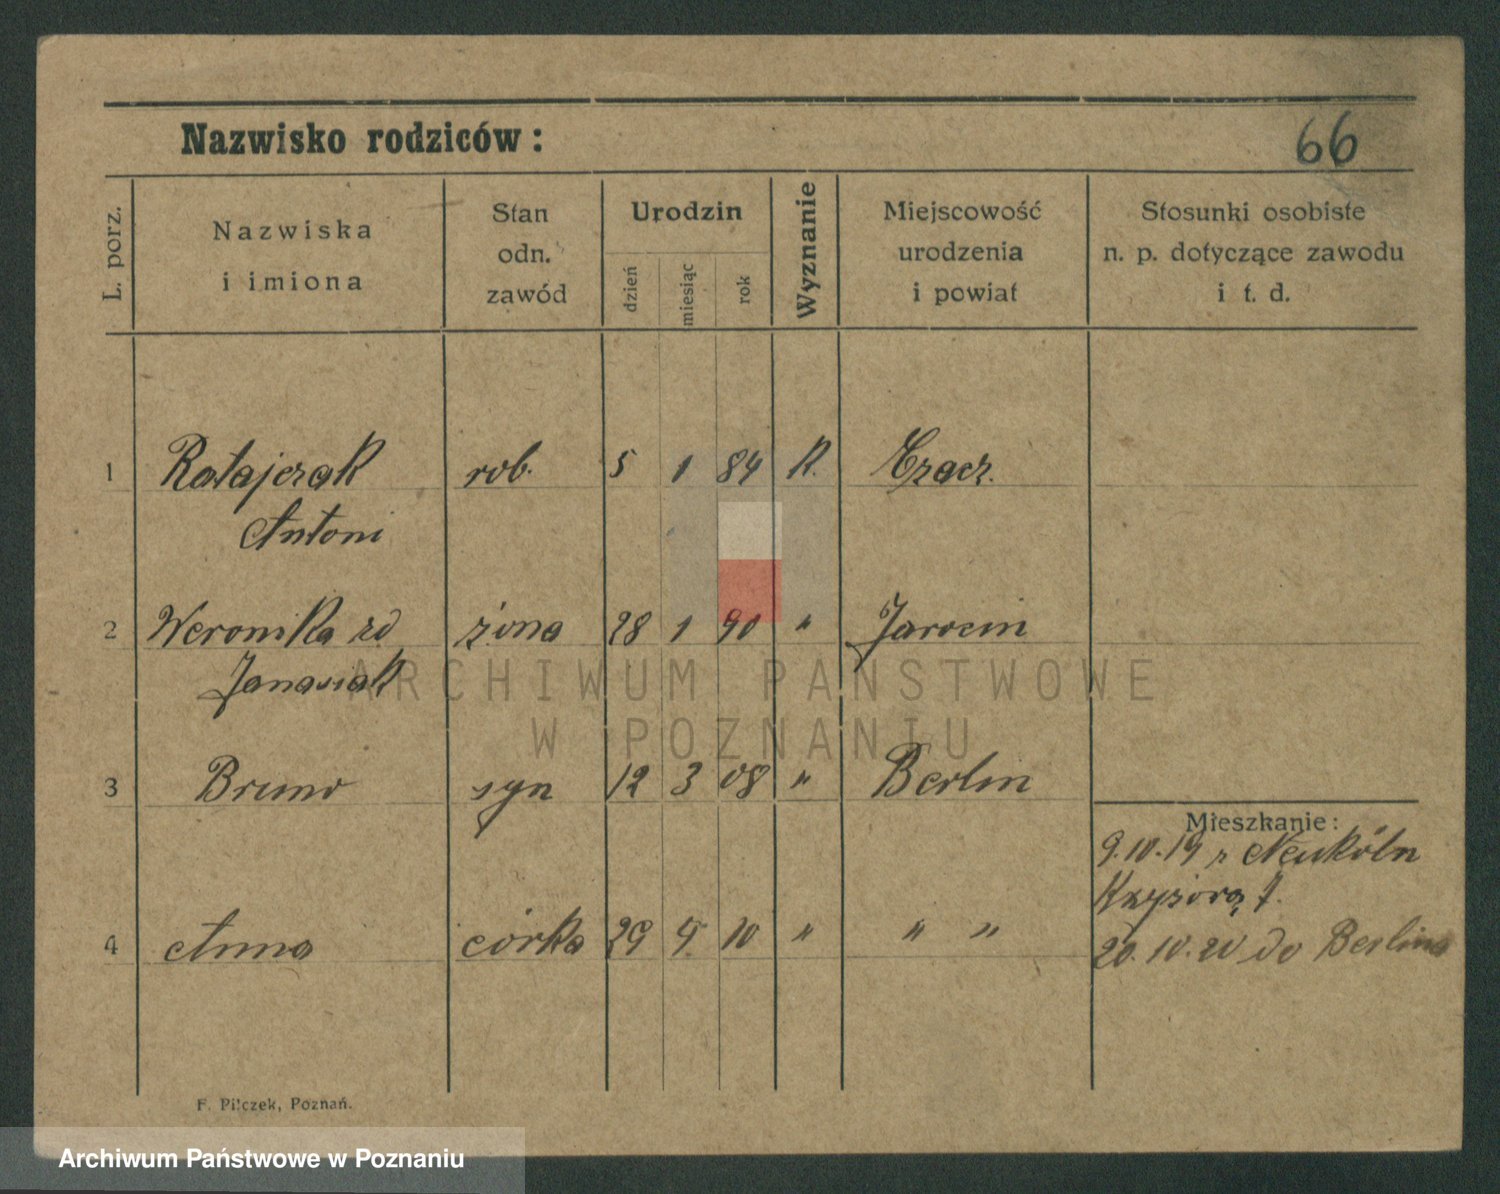 Nazwisko rodziców:
66
L. porz.
Nazwiska
i imiona
Stan
odn.
zawód
Urodzin
dzień
miesiąc
rok
Wyznanie
Miejscowość
urodzenia
i powiat
Stosunki osobiste
n. p. dotyczące zawodu
i t. d.
1 Ratajczak rob. 5 1 84 K.
Antoni
2 Weronika zd żona 28 1 90 " Jarocin
Janasiak
ARCHIWUM PAŃSTWOWE
W POZNANIU
3 Bruno syn 12 3 08 " Berlin
4 Anna córka 29 9 10 " " "
Mieszkanie:
9.10.19 z Neukölln
20.10.20 do Berlina
F. Pilczek, Poznań.
Archiwum Państwowe w Poznaniu